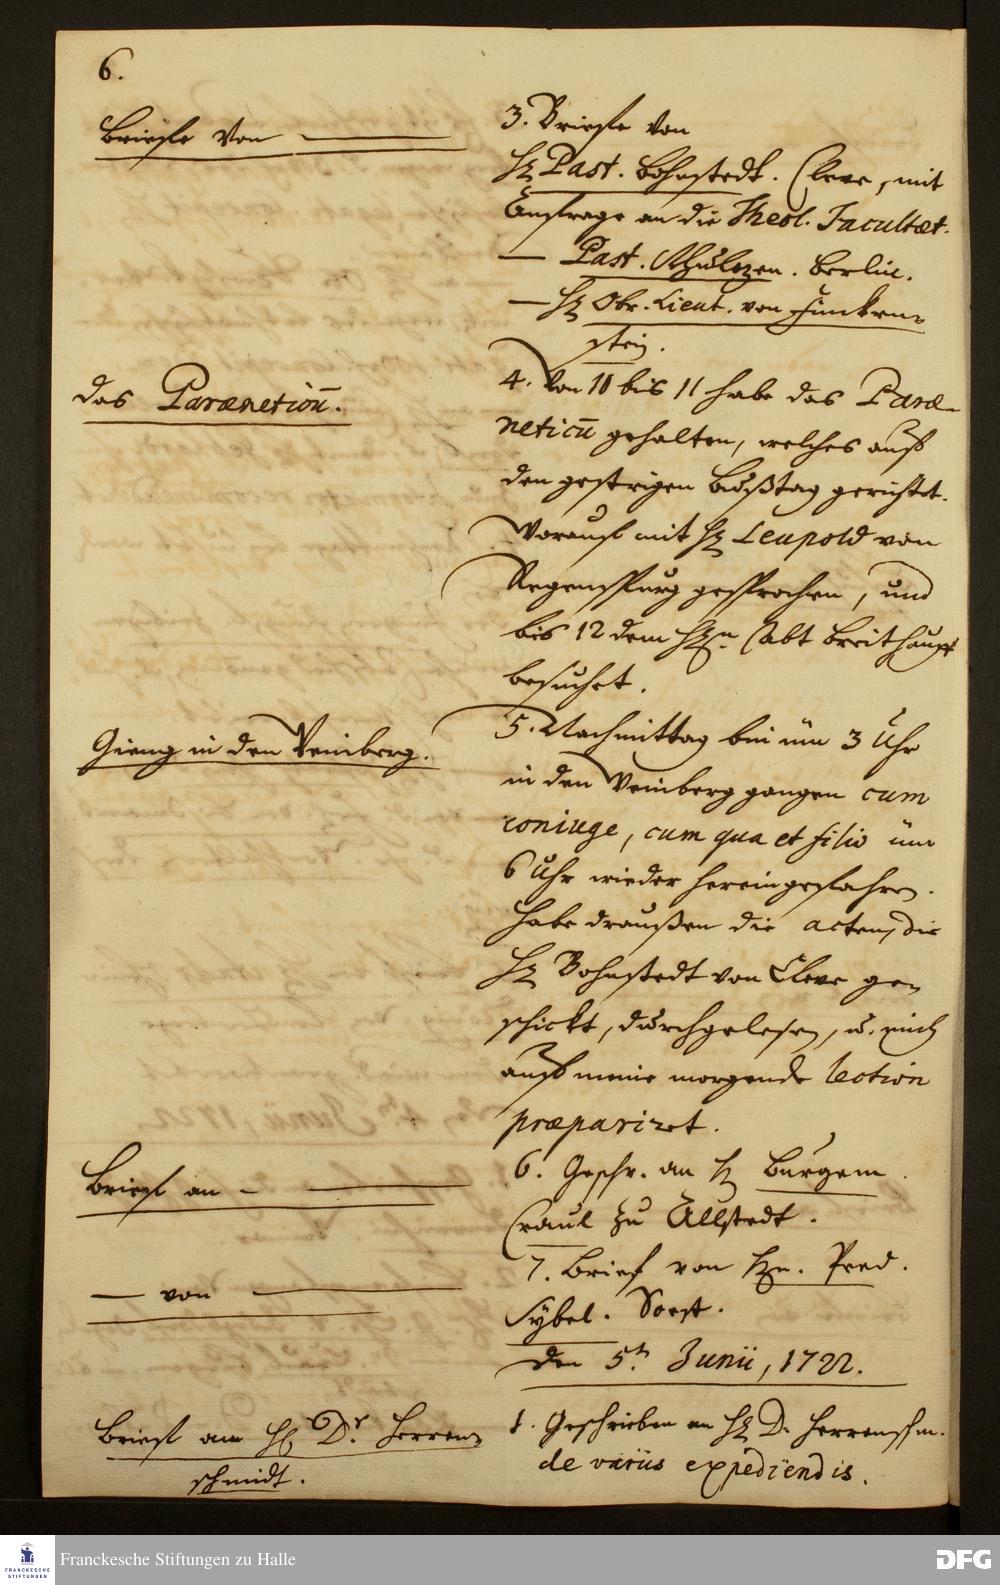 6.
Briefe von
3. Briefe von
H. Past. Bohnstedt. Cleve, mit
Anfrage an die Theol. Facultæt.
— Past. Schulzen. Berlin.
— H. Obr. Lieut. von Funken-
stein.
das Paræneticū.
4. Von 10 bis 11 habe das Paræ-
neticū gehalten, welches auf
den gestrigen Bußtag gerichtet.
Worauf mit H. Leupold von
Regenspurg gesprochen, und
bis 12 dem Hn. Abt Breithaupt
besuchet.
Gieng in den Weinberg.
5. Nachmittag bin üm 3 Uhr
in den Weinberg gangen cum
coniuge, cum qua et filio üm
6 Uhr wieder hereingefahren.
Habe draußen die acten, die
H. Bohnstedt von Cleve ge-
schickt, durchgelesen, u. mich
auf meine morgende lection
præpariret.
Brief an —
6. Geschr. an H. Bürgem.
Craul zu Allstedt.
— von
7. Brief von Hn. Pred.
Sybel. Soest.
Den 5t. Junii, 1722.
Brief an H. Dr. Herren-
schmidt.
1. Geschrieben an H. D. Herrnschm.
de variis expediendis.
Franckesche Stiftungen zu Halle
FRANCKESCHE
STIFTUNGEN
DFG